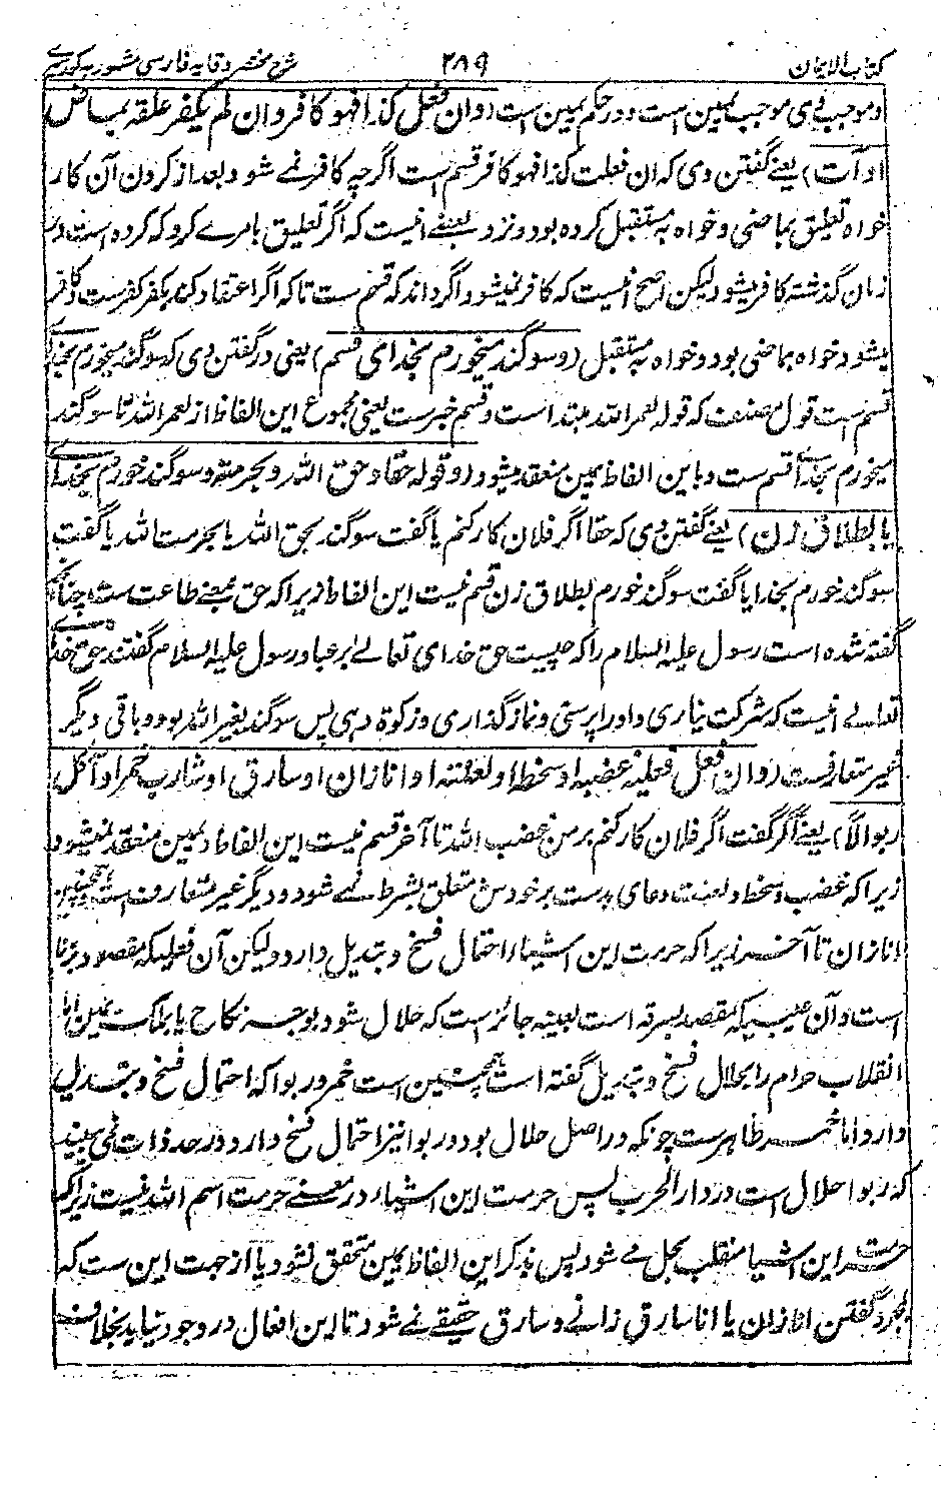 کتاب الایمان ۲۸۹ شرح مختصر وقایه فارسی مشهور به کورسے
او موجبے ی موجب یمین است و در حکم یمین است (و ان فعل کذا فهو کافر و ان لم یکفر علقه بماض
او آت) یعنے گفتن وی که ان فعلت کذا فهو کافر قسم است اگرچه کافر نمے شود بعد از کردن آن کار
خواه تعلیق بماضی و خواه بمستقبل کرده بود و نزد بعضے انیست که اگر تعلیق بامرے کرد که کرده است در
زمان گذشته کافر میشود لیکن اصح انیست که کافر نمیشود اگر داند که قسم ست تا که اگر اعتقاد کند بکفر کفرست کافر
میشود خواه بماضی بود و خواه بمستقبل (و سوگند میخورم بخدای قسم) یعنی در گفتن وی که سوگند میخورم بخدا
قسم ست قول مصنف که قوله لعمر الله مبتدا است و قسم خبرست یعنی مجموع این الفاظ از لعمر الله تا سوگند
میخورم بخداے قسم ست و باین الفاظ یمین منعقد میشود (و قوله حقا و حق الله و بحرمته و سوگند خورم بخداے
یا بطلاق زن) یعنے گفتن وی که حقا اگر فلان کار کنم یا گفت سوگند بحق الله یا بحرمت الله یا گفت
سوگند خورم بخدا یا گفت سوگند خورم بطلاق زن قسم نیست این الفاظ زیرا که حق بمعنے طاعت ست چنانکه
گفته شده است رسول علیه السلام را که چیست حق خدای تعالے بر عباد رسول علیه السلام گفتند حق خداے
تعالے انیست که شرکت نیاری و او را پرستی و نماز گذاری و زکوة دهی پس سوگند بغیر الله بود و باقی دیگر
غیر متعارفست (و ان فعل فعلیه غضبه او سخطه او لعنته او انا زان او سارق او شارب خمر او آکل
ربوا لا) یعنے اگر گفت اگر فلان کار کنم بر من غضب الله تا آخر قسم نیست این الفاظ و یمین منعقد نمیشود
زیرا که غضب و سخط و لعنت دعای بدست بر خودش متعلق بشرط نمے شود و دیگر غیر متعارف است و همچنین
انا زان تا آخر زیرا که حرمت این اشیاء احتمال فسخ و تبدیل دارد و لیکن آن فعلیکه مقصود بزنا
است و آن عیبیکه مقصد بسرقه است بعینه جائز است که حلال شود بوجه نکاح یا بملک یمین اما
انقلاب حرام را بحلال فسخ و تبدیل گفته است همچنین ست خمر و ربوا که احتمال فسخ و تبدیل
دارد اما خمر ظاهرست چونکه در اصل حلال بود و ربوا نیز احتمال فسخ دارد و در حد ذات نمی بینید
که ربوا حلال است در دار الحرب پس حرمت این اشیاء در معنے حرمت اسم الله نیست زیرا که
حرمت این اشیا منقلب بحل مے شود پس بذکر این الفاظ یمین متحقق نشود یا از جهت این ست که
بمجرد گفتن انا زان یا انا سارق زانے و سارق حقیقے نمے شود تا این افعال در وجود نیاید بخلاف